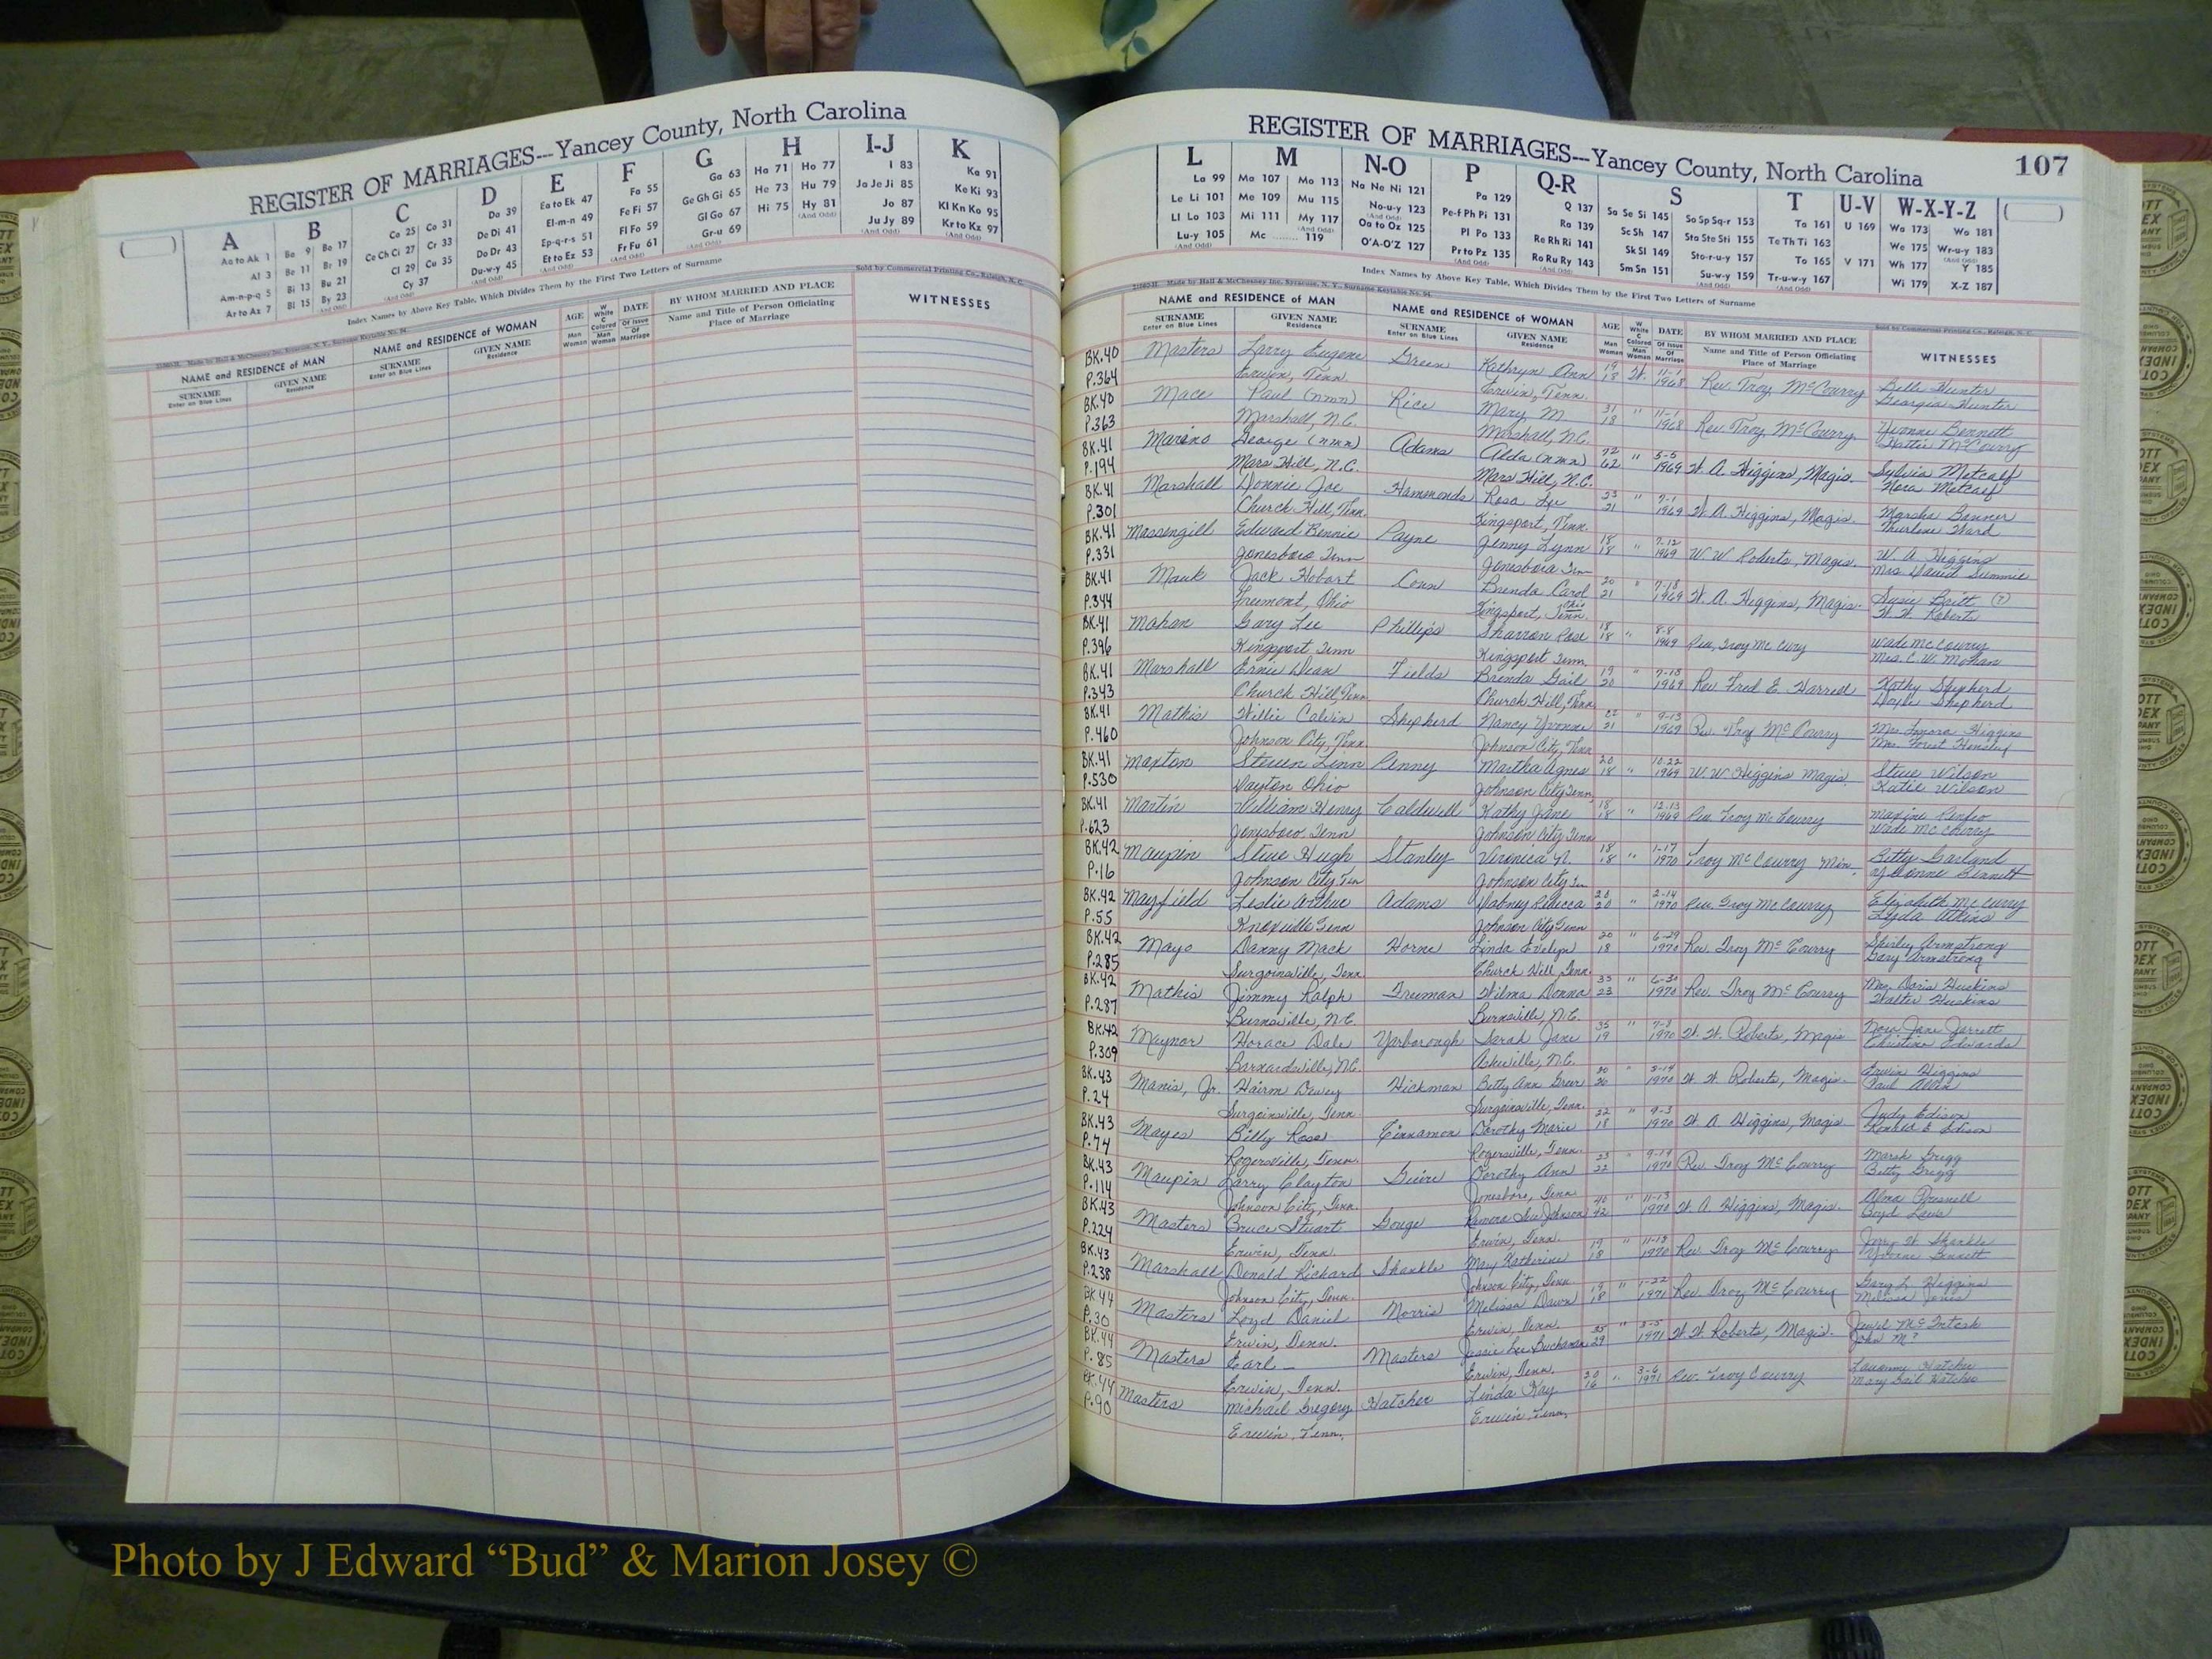 REGISTER OF MARRIAGES---Yancey County, North Carolina
A B C D E F G H I-J K
Aa to Ak 1 Ba 9 Bo 17 Ca 25 Co 31 Da 39 Ea to Ek 47 Fa 55 Ga 63 Ha 71 Ho 77 I 83 Ka 91
Al 3 Be 11 Br 19 Ce Ch Ci 27 Cr 33 De Di 41 El-m-n 49 Fe Fi 57 Ge Gh Gi 65 He 73 Hu 79 Ja Je Ji 85 Ke Ki 93
Am-n-p-q 5 Bi 13 Bu 21 Cl 29 Cu 35 Do Dr 43 Ep-q-r-s 51 Fl Fo 59 Gl Go 67 Hi 75 Hy 81 Jo 87 Kl Kn Ko 95
Ar to Az 7 Bl 15 By 23 Cy 37 Du-w-y 45 Et to Ez 53 Fr Fu 61 Gr-u 69 Ju Jy 89 Kr to Kz 97
Index Names by Above Key Table, Which Divides Them by the First Two Letters of Surname
Sold by Commercial Printing Co., Raleigh, N. C.
NAME and RESIDENCE of MAN NAME and RESIDENCE of WOMAN AGE DATE BY WHOM MARRIED AND PLACE WITNESSES
SURNAME GIVEN NAME SURNAME GIVEN NAME Man Woman White Colored Of Issue Of Marriage Name and Title of Person Officiating
Enter on Blue Lines Residence Enter on Blue Lines Residence Place of Marriage
REGISTER OF MARRIAGES---Yancey County, North Carolina 107
L M N-O P Q-R S T U-V W-X-Y-Z
La 99 Ma 107 Mo 113 Na Ne Ni 121 Pa 129 Q 137 Sa Se Si 145 So Sp Sq-r 153 Ta 161 U 169 Wa 173 Wo 181
Le Li 101 Me 109 Mu 115 No-u-y 123 Pe-f Ph Pi 131 Ra 139 Sc Sh 147 Sta Ste Sti 155 Te Th Ti 163 We 175 Wr-u-y 183
Ll Lo 103 Mi 111 My 117 Oa to Oz 125 Pl Po 133 Re Rh Ri 141 Sk Sl 149 Sto-r-u-y 157 To 165 V 171 Wh 177 Y 185
Lu-y 105 Mc 119 O'A-O'Z 127 Pr to Pz 135 Ro Ru Ry 143 Sm Sn 151 Su-w-y 159 Tr-u-w-y 167 Wi 179 X-Z 187
Index Names by Above Key Table, Which Divides Them by the First Two Letters of Surname
NAME and RESIDENCE of MAN NAME and RESIDENCE of WOMAN AGE DATE BY WHOM MARRIED AND PLACE WITNESSES
SURNAME GIVEN NAME SURNAME GIVEN NAME Name and Title of Person Officiating
Enter on Blue Lines Residence Enter on Blue Lines Residence Place of Marriage
BK.40 Masters Larry Eugene Green Kathryn Ann 19 18 W. 11-1 1968 Rev. Troy McCourry Belle Hunter
P.364 Erwin, Tenn. Erwin, Tenn. Georgia Hunter
BK.40 Mace Paul (nmn) Rice Mary M. 31 18 " 11-1 1968 Rev. Troy McCourry Yvonne Bennett
P.363 Marshall, N.C. Marshall, N.C. Hattie McCourry
BK.41 Marino George (nmn) Adams Alda (nmn) 72 62 " 5-5 1969 W. A. Higgins, Magis. Sylvia Metcalf
P.194 Mars Hill, N.C. Mars Hill, N.C. Nora Metcalf
BK.41 Marshall Donnie Joe Hammonds Rosa Lee 23 21 " 7-1 1969 W. A. Higgins, Magis. Marsha Banner
P.301 Church Hill, Tenn. Kingsport, Tenn. Ward
BK.41 Massengill Edward Bennie Payne Jenny Lynn 18 18 " 7-12 1969 W. W. Roberts, Magis. W. A. Higgins
P.331 Jonesboro Tenn Jonesboro Tenn Mrs David
BK.41 Mauk Jack Hobart Conn Brenda Carol 20 21 " 7-18 1969 W. A. Higgins, Magis. Susie Britt (?)
P.344 Fremont, Ohio Kingsport, Tenn. W. W. Roberts
BK.41 Mahan Gary Lee Phillips Sharron Rose 18 18 " 8-8 1969 Rev, Troy Mc Cury Wade McCourry
P.396 Kingsport Tenn Kingsport Tenn Mrs. C. W. Mohan
BK.41 Marshall Ernie Dean Fields Brenda Gail 19 20 " 7-18 1969 Rev Fred E. Harrell Kathy Shepherd
P.343 Church Hill, Tenn Church Hill, Tenn Doyle Shepherd
BK.41 Mathis Willie Calvin Shepherd Nancy Yvonne 22 21 " 9-13 1969 Rev. Troy McCourry Mrs Lenora Higgins
P.460 Johnson City, Tenn Johnson City, Tenn Mrs. Forest Hensley
BK.41 Maxton Steven Linn Penny Martha Agnes 20 18 " 10-22 1969 W. W. Higgins Magis. Steve Wilson
P.530 Dayton Ohio Johnson City Tenn, Katie Wilson
BK.41 Martin William Henry Caldwell Kathy Jane 18 18 " 12-13 1969 Rev Troy McCourry Maxine Renfro
P.623 Jonesboro, Tenn Johnson City Tenn Wade McCourry
BK.42 Maupin Steve Hugh Stanley Veronica N. 18 18 " 1-17 1970 Troy McCourry Min. Betty Garland
P.16 Johnson City Ten Johnson City Ten Yvonne Bennett
BK.42 Mayfield Leslie Arthur Adams Dabney Rebecca 20 20 " 2-14 1970 Rev. Troy McCourry Elizabeth McCurry
P.55 Knoxville Tenn Johnson City Tenn Lyda Atkins
BK.42 Mayo Danny Mack Horne Linda Evelyn 20 18 " 6-29 1970 Rev. Troy McCourry Shirley Armstrong
P.285 Surgoinsville, Tenn Church Hill, Tenn. Gary Armstrong
BK.42 Mathis Jimmy Ralph Freeman Wilma Donna 33 23 " 6-30 1970 Rev. Troy McCourry Mrs. Doris Huskins
P.287 Burnsville, N.C. Burnsville, N.C. Walter Huskins
BK.42 Maynor Horace Dale Yarborough Sarah Jane 35 19 " 7-8 1970 W. W. Roberts, Magis Nora Jane Jarrett
P.309 Barnardsville, N.C. Asheville, N.C. Christine Edwards
BK.43 Manis, Jr. Hairm Dewey Hickman Betty Ann Greer 30 26 " 8-14 1970 W. W. Roberts, Magis. Erwin Higgins
P.24 Surgoinsville, Tenn. Surgoinsville, Tenn. Paul Allen
BK.43 Mayes Billy Ross Cinnamon Dorothy Marie 22 18 " 9-3 1970 W. A. Higgins, Magis Judy Edison
P.74 Rogersville, Tenn. Rogersville, Tenn. Kenneth E Edison
BK.43 Maupin Larry Clayton Guire Dorothy Ann 23 22 " 9-19 1970 Rev. Troy McCourry Marsh Gregg
P.114 Johnson City, Tenn. Jonesboro, Tenn Betty Gregg
BK.43 Masters Bruce Stuart Gouge Ramona Sue Johnson 40 42 " 11-13 1970 W. A. Higgins, Magis. Alma Presnell
P.224 Erwin, Tenn. Erwin, Tenn. Boyd Laws
BK.43 Marshall Donald Richard Shankle Mary Katherine 19 18 " 11-18 1970 Rev. Troy McCourry Jerry W. Shankle
P.238 Johnson City, Tenn. Johnson City, Tenn Yvonne Bennett
BK.44 Masters Loyd Daniel Norris Melissa Dawn 19 18 " 1-22 1971 Rev. Troy McCourry Gary L. Higgins
P.30 Erwin, Tenn. Erwin, Tenn. Melissa Jones
BK.44 Masters Earl — Masters Jessie Lee Buchanan 35 29 " 3-5 1971 W. W. Roberts, Magis. Jewel McIntosh
P.85 Erwin, Tenn. Erwin, Tenn. John M?
BK.44 Masters Michael Gregory Hatcher Linda Kay 20 16 " 3-6 1971 Rev. Troy Courry Hatcher
P.90 Erwin, Tenn. Erwin, Tenn, Mary Gail Hatcher
Photo by J Edward “Bud” & Marion Josey ©